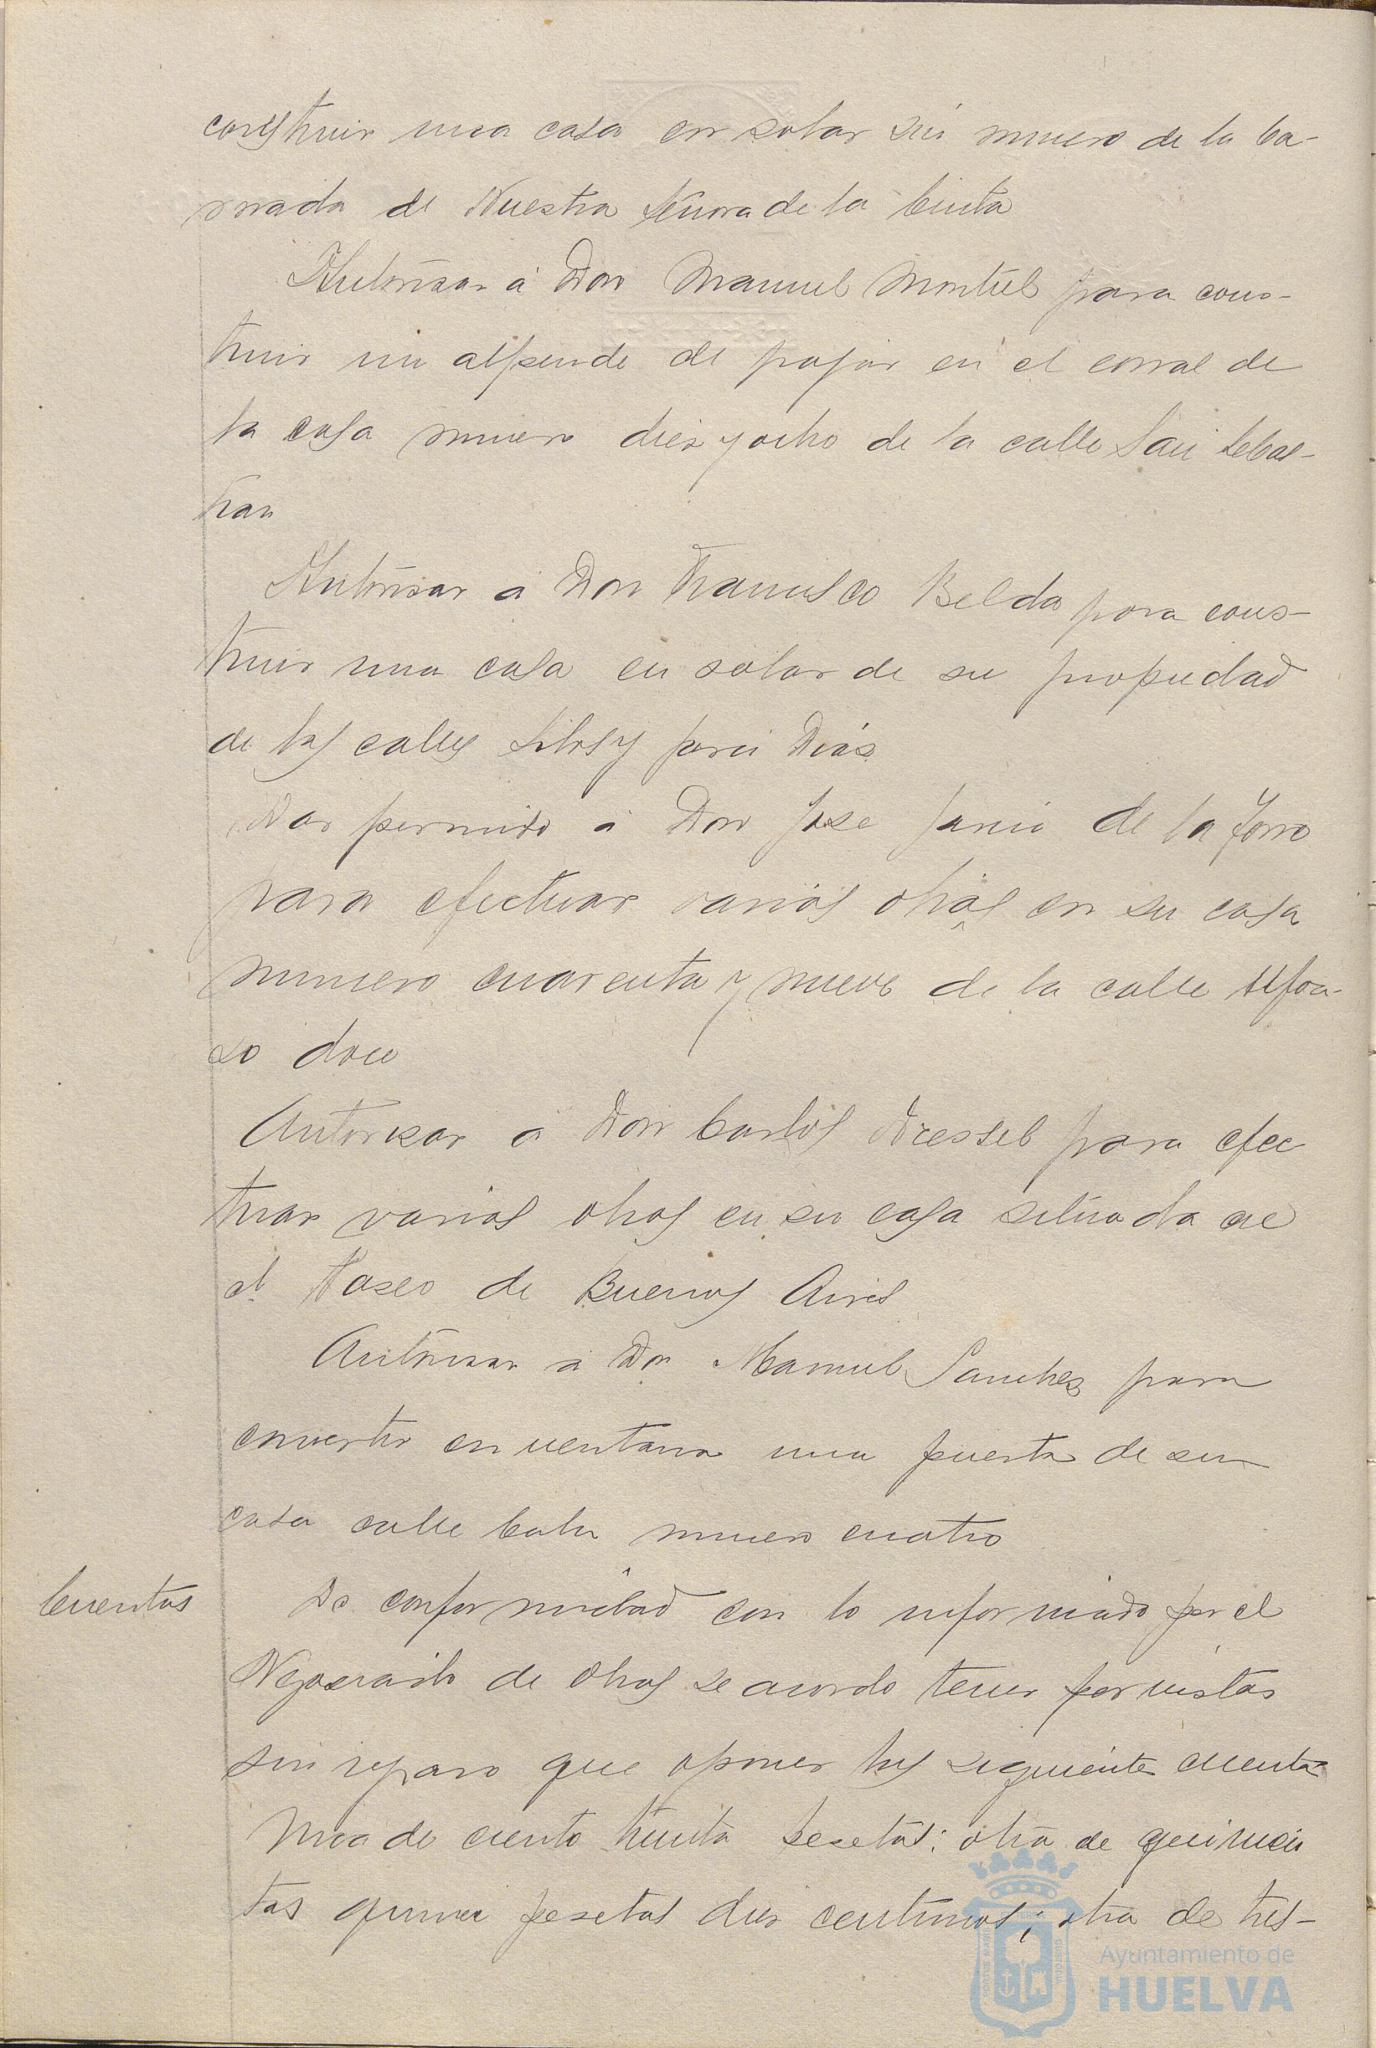 construir una casa en solar sin numero de la ba-
rriada de Nuestra Señora de la Cinta
Autorizar á Don Manuel Montiel para cons-
truir un alpende de pajar en el corral de
la casa numero diez y ocho de la calle San Sebas-
tian
Autorizar á Don Francisco Belda para cons-
truir una casa en solar de su propiedad
de las calles Silos y Garci Dias
Dar permiso á Don Jose Garcia de la Torre
para efectuar varias obras en su casa
numero cuarenta y nueve de la calle Alfon-
so doce
Autorizar á Don Carlos Dressel para efec
tuar varias obras en su casa situada en
el Paseo de Buenos Aires
Autorizar á Don Manuel Sanchez para
convertir en ventana una puerta de su
casa calle Cala numero cuatro
Cuentas
De conformidad con lo informado por el
Negociado de Obras se acordo tener por vistas
sin reparo que oponer las siguientes cuentas
Una de ciento treinta pesetas; otra de quinien
tas quince pesetas diez centimos; otra de tres-
Ayuntamiento de
HUELVA